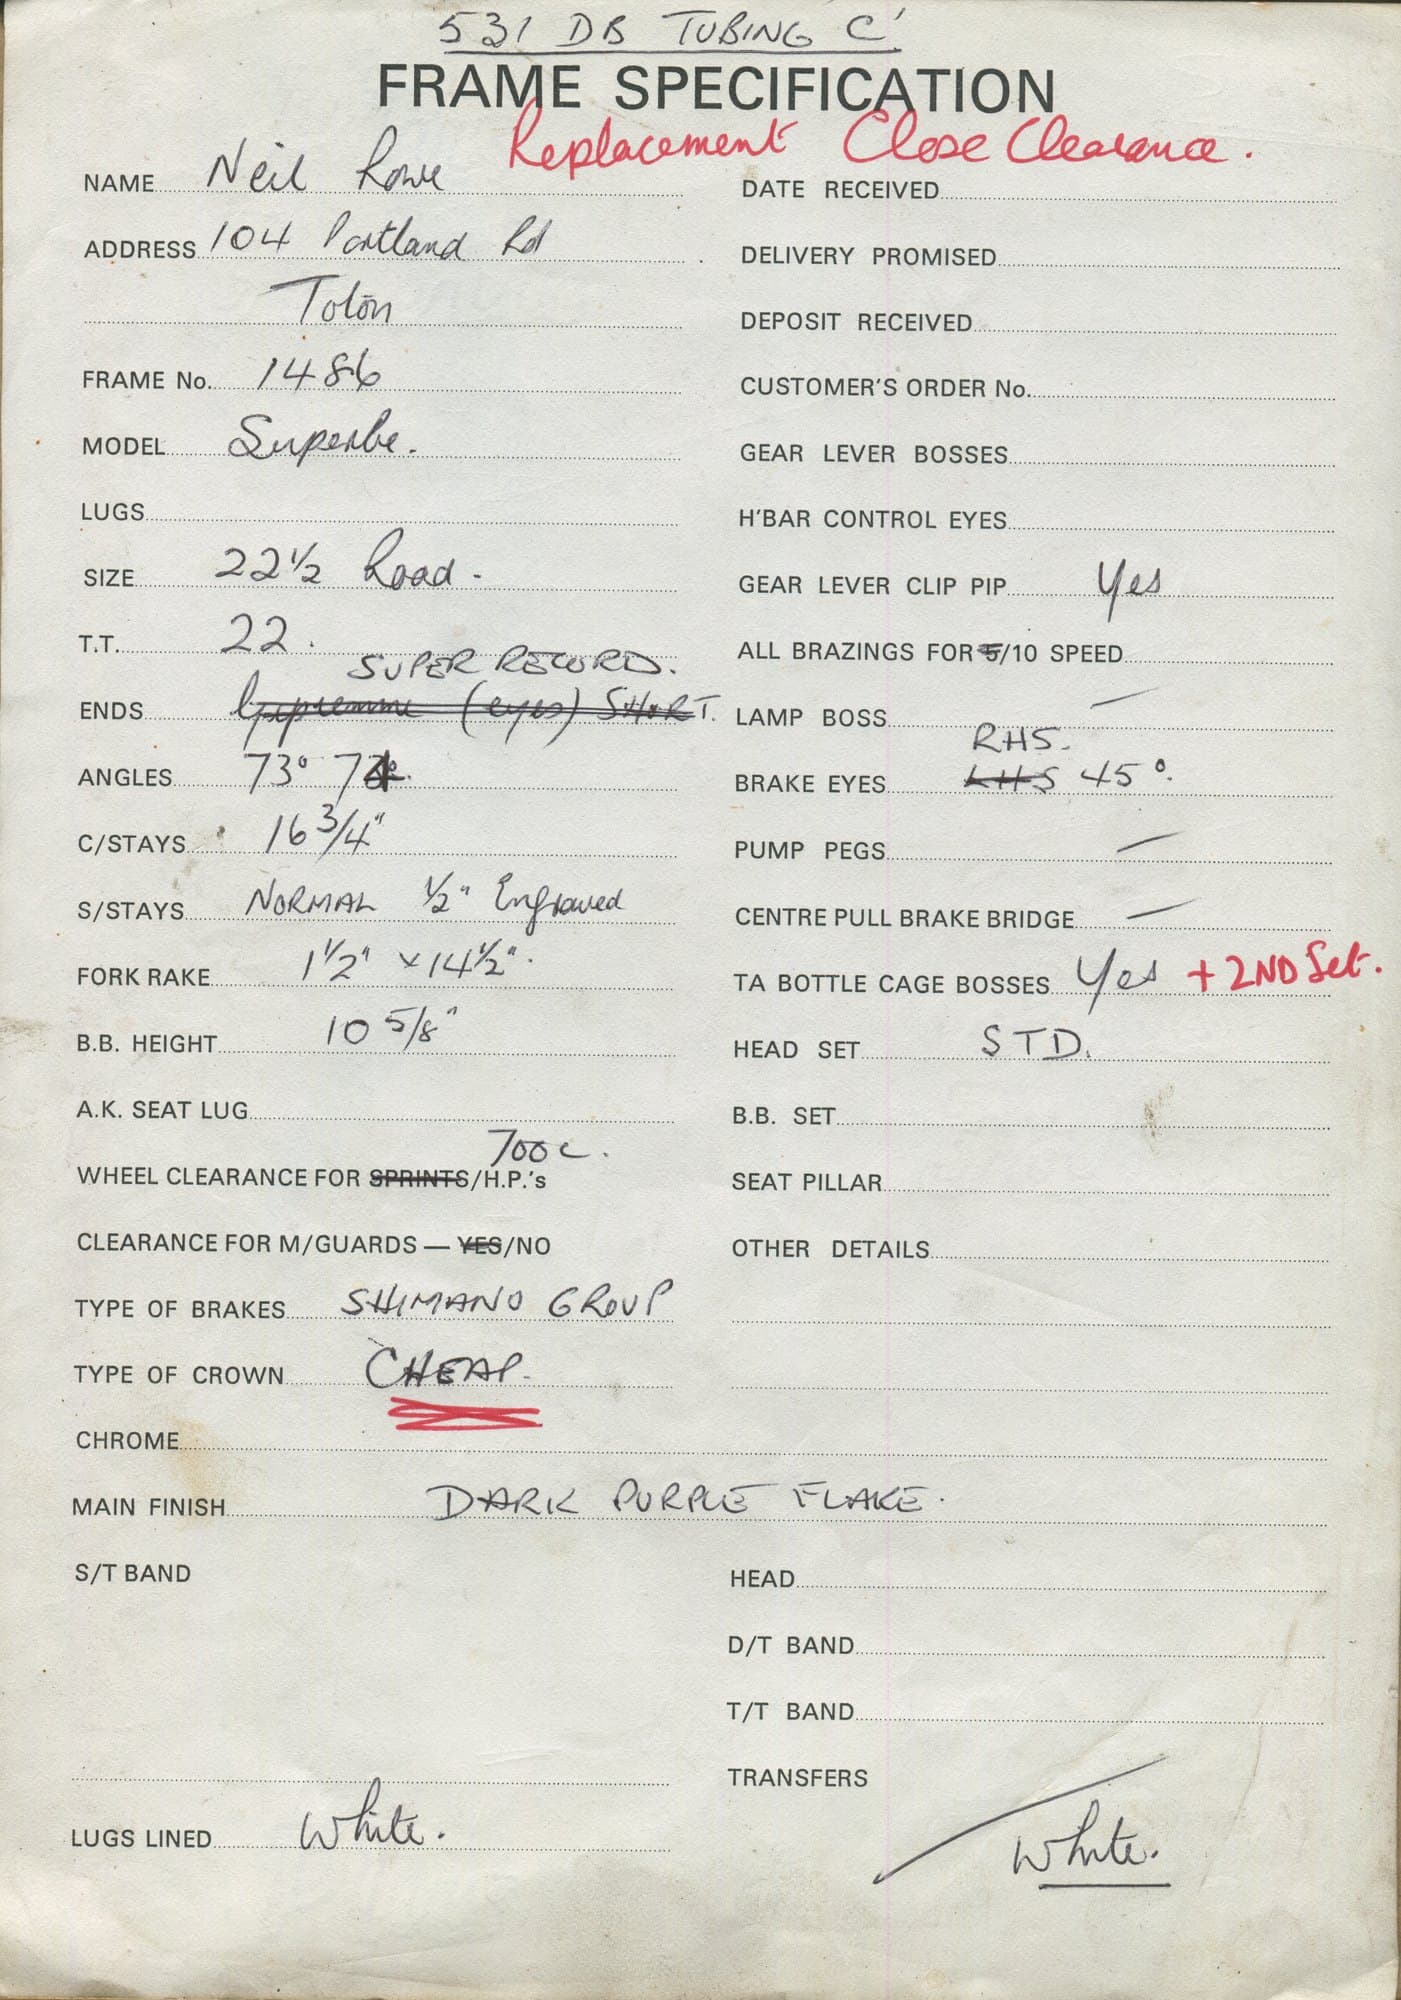 531 DB TUBING C'
FRAME SPECIFICATION
Replacement Close Clearance.
NAME Neil Rowe
ADDRESS 104 Portland Rd
Toton
FRAME No. 1486
MODEL Superbe.
LUGS
SIZE 22 1/2 Road.
T.T. 22.
SUPER RECORD.
ENDS (eyes) SHORT.
ANGLES 73° 74°.
C/STAYS 16 3/4"
S/STAYS NORMAL 1/2" Engraved
FORK RAKE 1 1/2" x 14 1/2".
B.B. HEIGHT 10 5/8"
A.K. SEAT LUG
700c.
WHEEL CLEARANCE FOR SPRINTS/H.P.'s
CLEARANCE FOR M/GUARDS — YES/NO
TYPE OF BRAKES SHIMANO GROUP
TYPE OF CROWN CHEAP.
DATE RECEIVED
DELIVERY PROMISED
DEPOSIT RECEIVED
CUSTOMER'S ORDER No.
GEAR LEVER BOSSES
H'BAR CONTROL EYES
GEAR LEVER CLIP PIP Yes
ALL BRAZINGS FOR 5/10 SPEED
LAMP BOSS —
RHS.
BRAKE EYES LHS 45°.
PUMP PEGS —
CENTRE PULL BRAKE BRIDGE —
TA BOTTLE CAGE BOSSES Yes + 2ND Set.
HEAD SET STD.
B.B. SET
SEAT PILLAR
OTHER DETAILS
CHROME
MAIN FINISH DARK PURPLE FLAKE.
S/T BAND
LUGS LINED White.
HEAD
D/T BAND
T/T BAND
TRANSFERS
White.